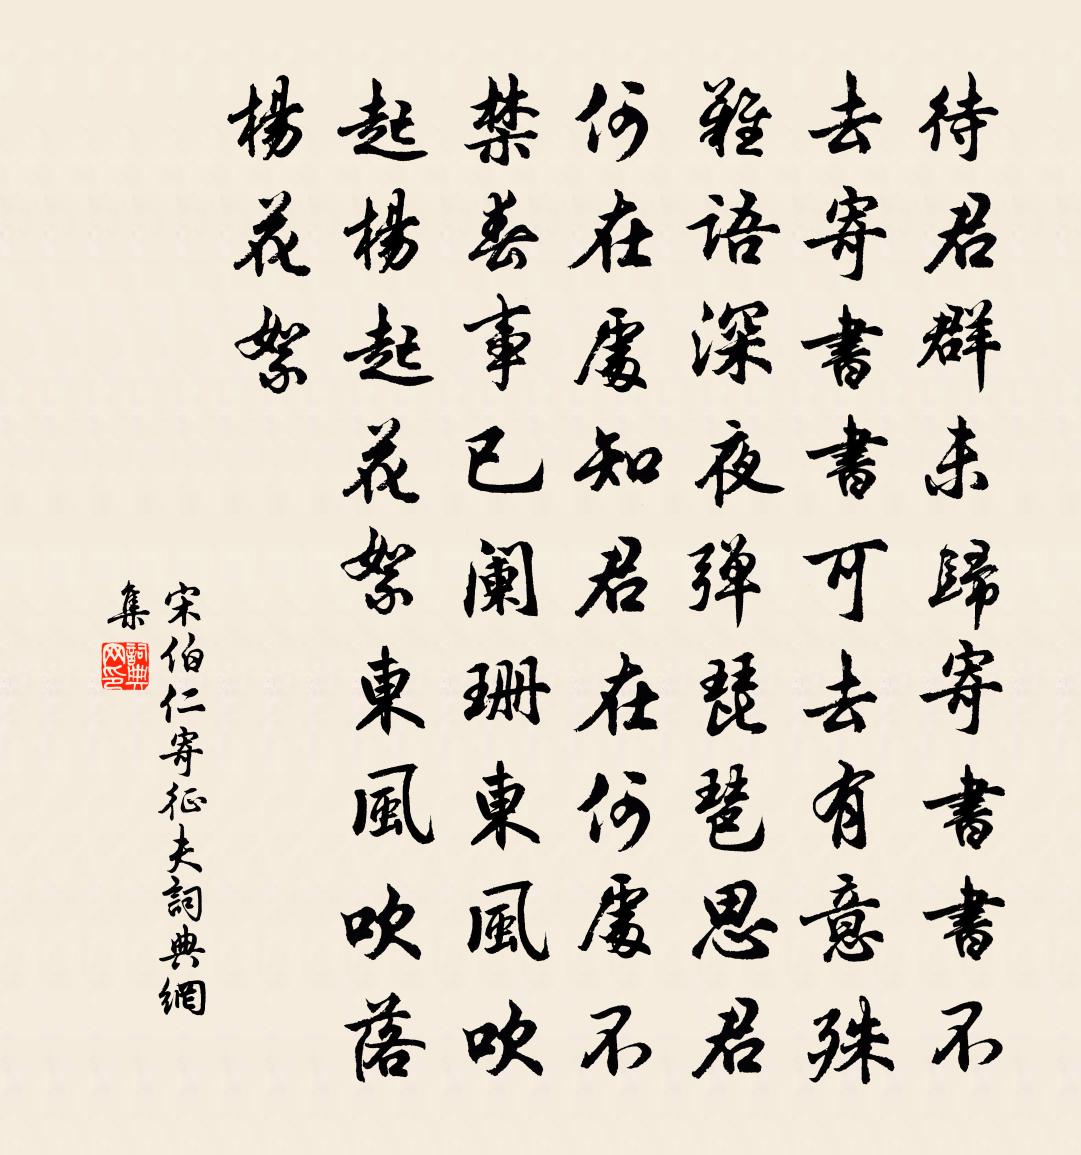 待君群未歸寄書書不
去寄書書可去有意殊
難語深夜弹琵琶思君
何在處知君在何處不
禁春事已阑珊東風吹
起楊起花絮東風吹落
楊花絮
宋伯仁寄征夫詞典網
集
詞典
网印